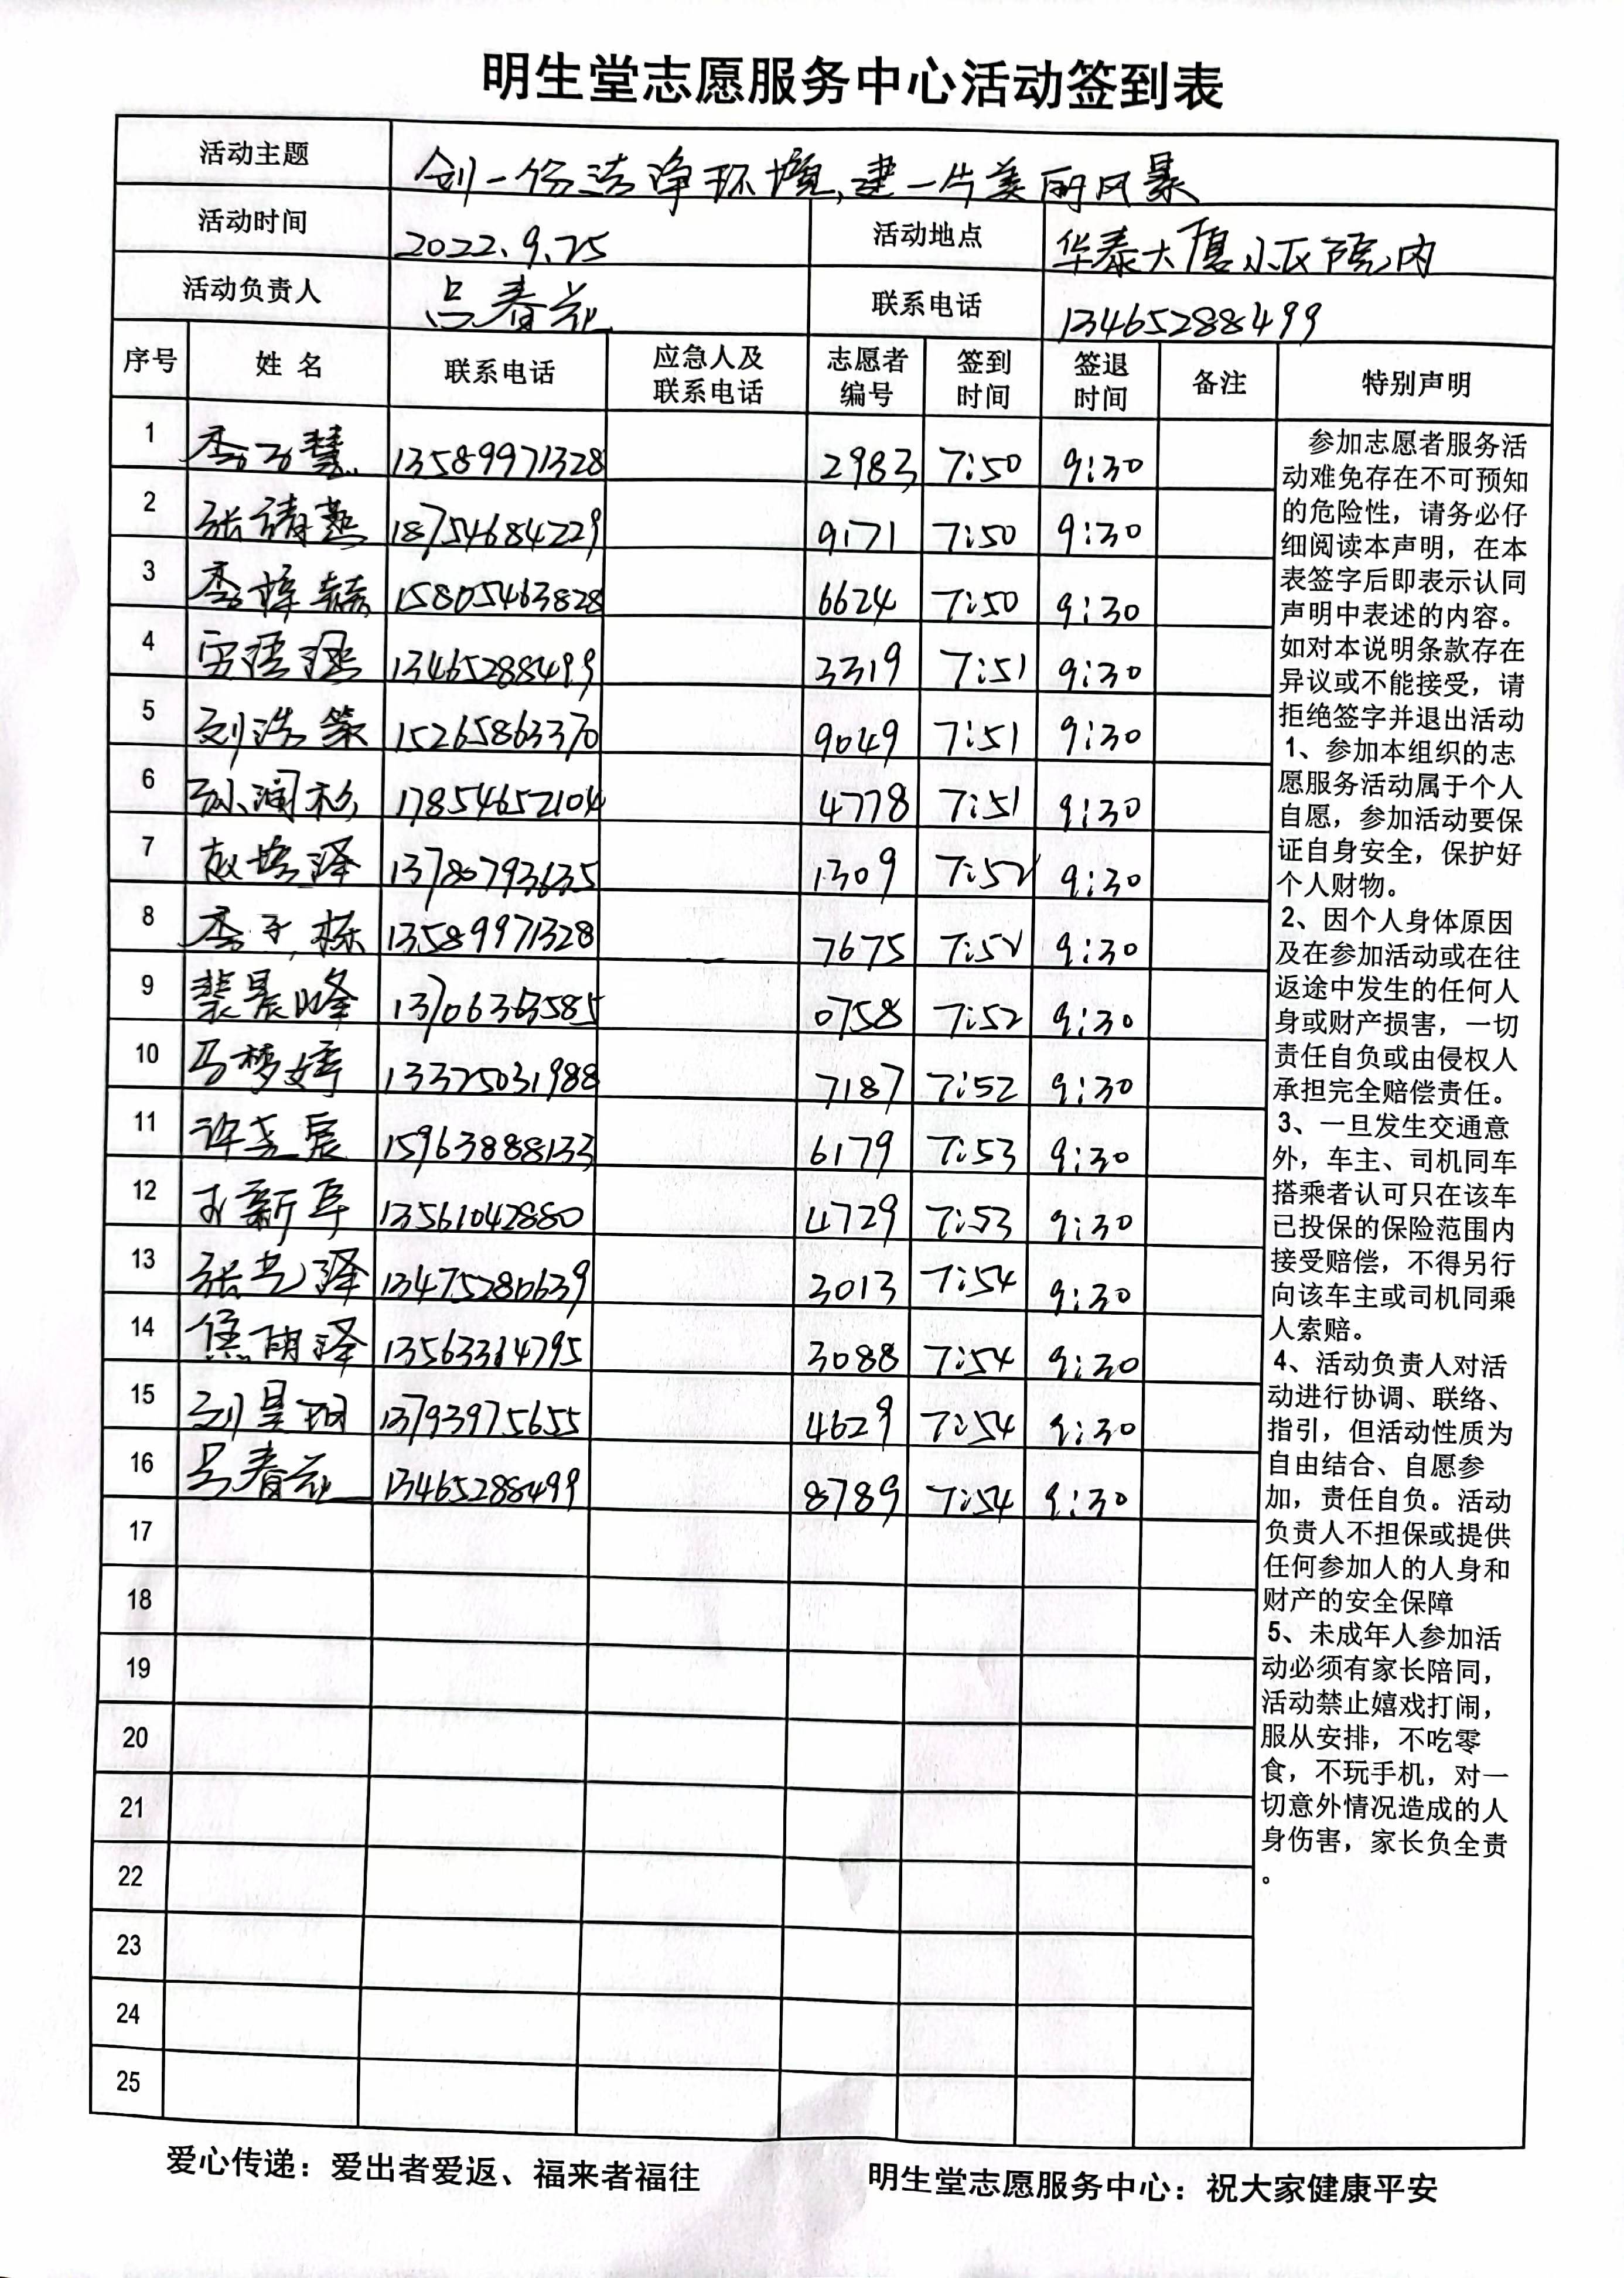 明生堂志愿服务中心活动签到表
活动主题 创一份洁净环境,建一片美丽风景
活动时间 2022.9.25 活动地点 华泰大厦小区院内
活动负责人 吕春花 联系电话 13465288499
序号 姓名 联系电话 应急人及联系电话 志愿者编号 签到时间 签退时间 备注 特别声明
1 李子慧 13589971328 2983 7:50 9:30
2 张靖燕 18754684229 9171 7:50 9:30
3 李梓赫 15805463828 6624 7:50 9:30
4 13465288499 3319 7:51 9:30
5 刘浩策 15265863370 9049 7:51 9:30
6 孙润杉 17854652104 4778 7:51 9:30
7 赵培泽 13780793635 1309 7:52 9:30
8 李子栋 13589971328 7675 7:52 9:30
9 裴晨峰 13706363585 0758 7:52 9:30
10 马梦婷 13325031988 7187 7:52 9:30
11 许尧宸 15963888133 6179 7:53 9:30
12 新军 13561042880 4729 7:53 9:30
13 张艺泽 13475280639 3013 7:54 9:30
14 焦明泽 13563314795 3088 7:54 9:30
15 刘昱 13793975655 4629 7:54 9:30
16 吕春花 13465288499 8789 7:54 9:30
17
18
19
20
21
22
23
24
25
参加志愿者服务活
动难免存在不可预知
的危险性，请务必仔
细阅读本声明，在本
表签字后即表示认同
声明中表述的内容。
如对本说明条款存在
异议或不能接受，请
拒绝签字并退出活动
1、参加本组织的志
愿服务活动属于个人
自愿，参加活动要保
证自身安全，保护好
个人财物。
2、因个人身体原因
及在参加活动或在往
返途中发生的任何人
身或财产损害，一切
责任自负或由侵权人
承担完全赔偿责任。
3、一旦发生交通意
外，车主、司机同车
搭乘者认可只在该车
已投保的保险范围内
接受赔偿，不得另行
向该车主或司机同乘
人索赔。
4、活动负责人对活
动进行协调、联络、
指引，但活动性质为
自由结合、自愿参
加，责任自负。活动
负责人不担保或提供
任何参加人的人身和
财产的安全保障
5、未成年人参加活
动必须有家长陪同，
活动禁止嬉戏打闹，
服从安排，不吃零
食，不玩手机，对一
切意外情况造成的人
身伤害，家长负全责
。
爱心传递：爱出者爱返、福来者福往 明生堂志愿服务中心：祝大家健康平安